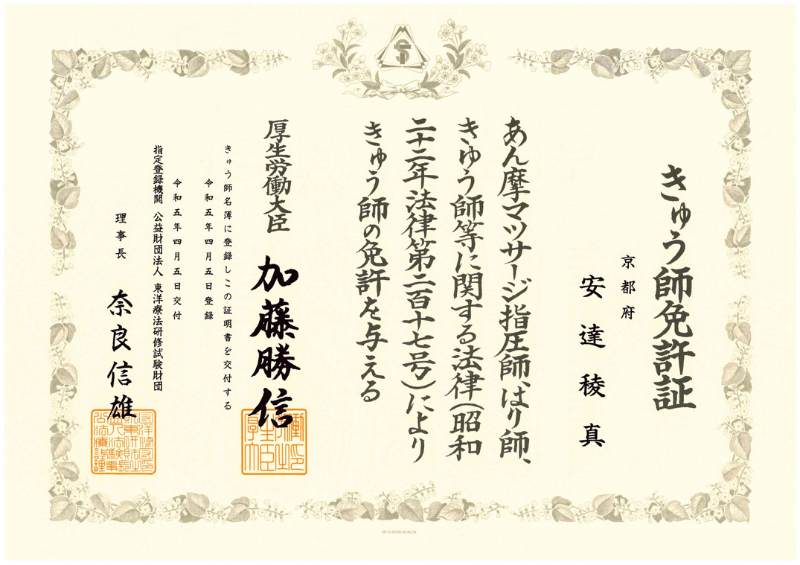 きゅう師免許証
京都府
安達稜真
あん摩マツサージ指圧師、はり師、
きゆう師等に関する法律(昭和
二十二年法律第二百十七号)により
きゅう師の免許を与える
厚生労働大臣
加藤勝信
きゅう師名簿に登録しこの証明書を交付する
令和五年四月五日登録
令和五年四月五日交付
指定登録機関 公益財団法人 東洋療法研修試験財団
理事長
奈良信雄